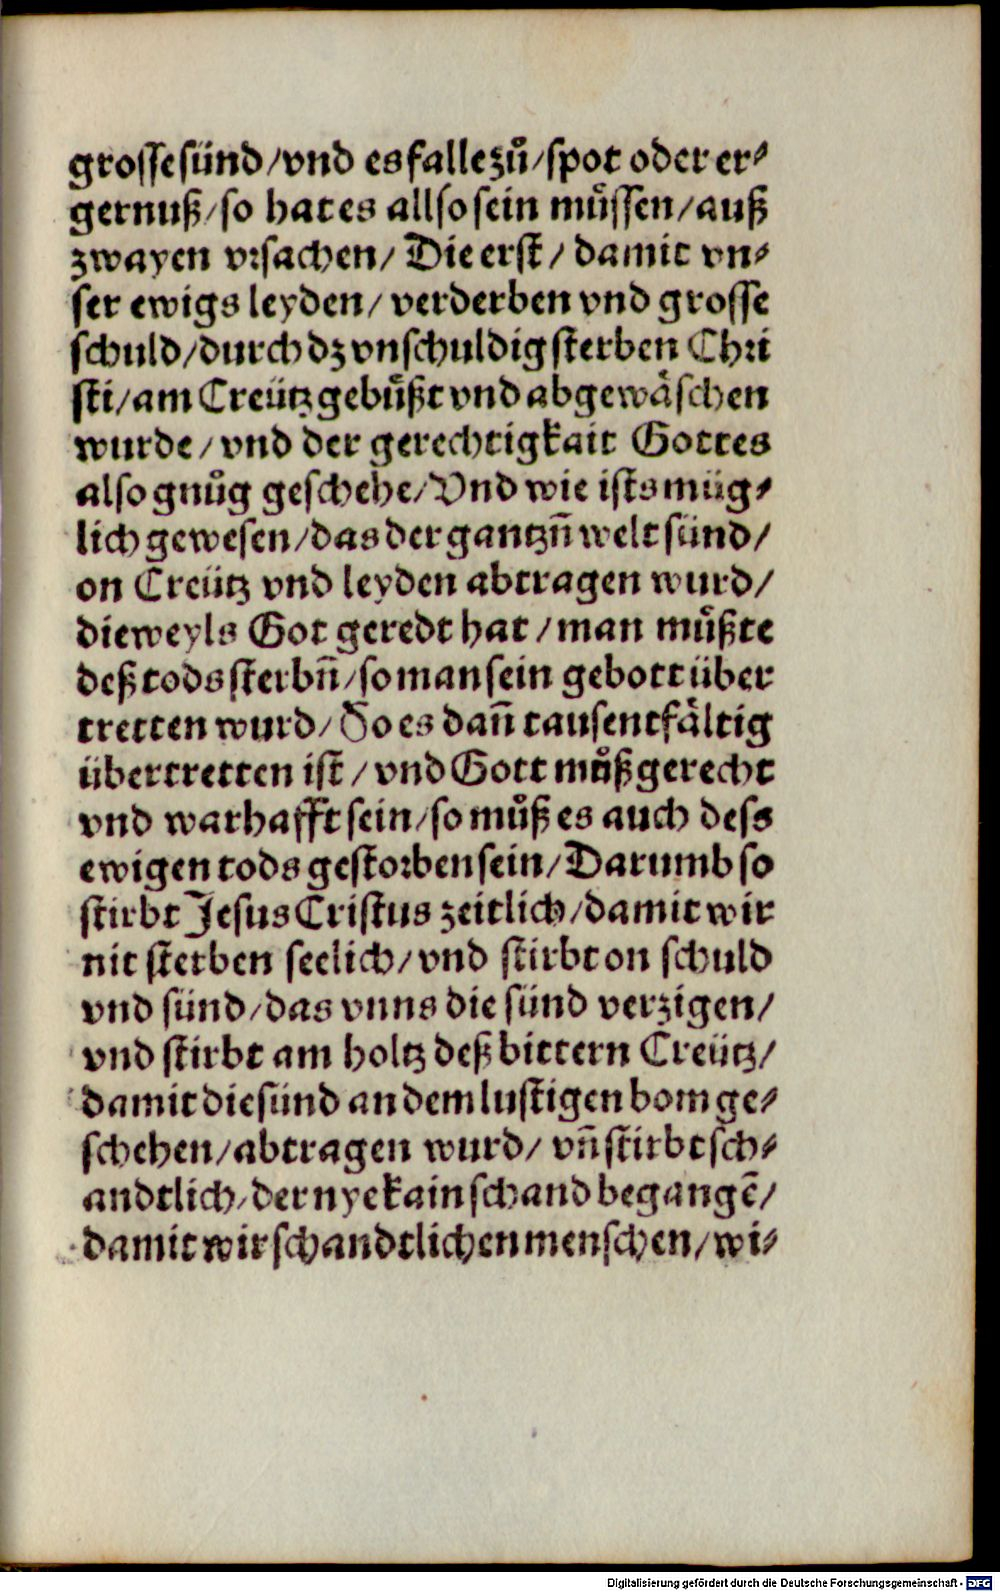 grosse sünd/vnd es falle zů/spot oder er⸗
gernuß/so hat es allso sein můssen/auß
zwayen vrsachen/ Die erst/ damit vn⸗
ser ewigs leyden/ verderben vnd grosse
schuld/durch dz vnschuldig sterben Chri
sti/am Creütz gebůßt vnd abgewäschen
wurde/vnd der gerechtigkait Gottes
also gnůg geschehe/Vnd wie ists müg⸗
lich gewesen/das der gantzñ welt sünd/
on Creütz vnd leyden abtragen wurd/
dieweyls Got geredt hat/man můßte
deß tods sterbñ/so man sein gebott über
tretten wurd/So es dañ tausentfältig
übertretten ist/vnd Gott můß gerecht
vnd warhafft sein/so můß es auch dess
ewigen tods gestorben sein/Darumb so
stirbt Jesus Cristus zeitlich/damit wir
nit sterben seelich/vnd stirbt on schuld
vnd sünd/das vnns die sünd verzigen/
vnd stirbt am holtz deß bittern Creütz/
damit die sünd an dem lustigen bom ge⸗
schehen/abtragen wurd/ vñ stirbt sch⸗
andtlich/der nye kain schand begangē/
damit wir schandtlichen menschen/wi⸗
Digitalisierung gefördert durch die Deutsche Forschungsgemeinschaft - DFG